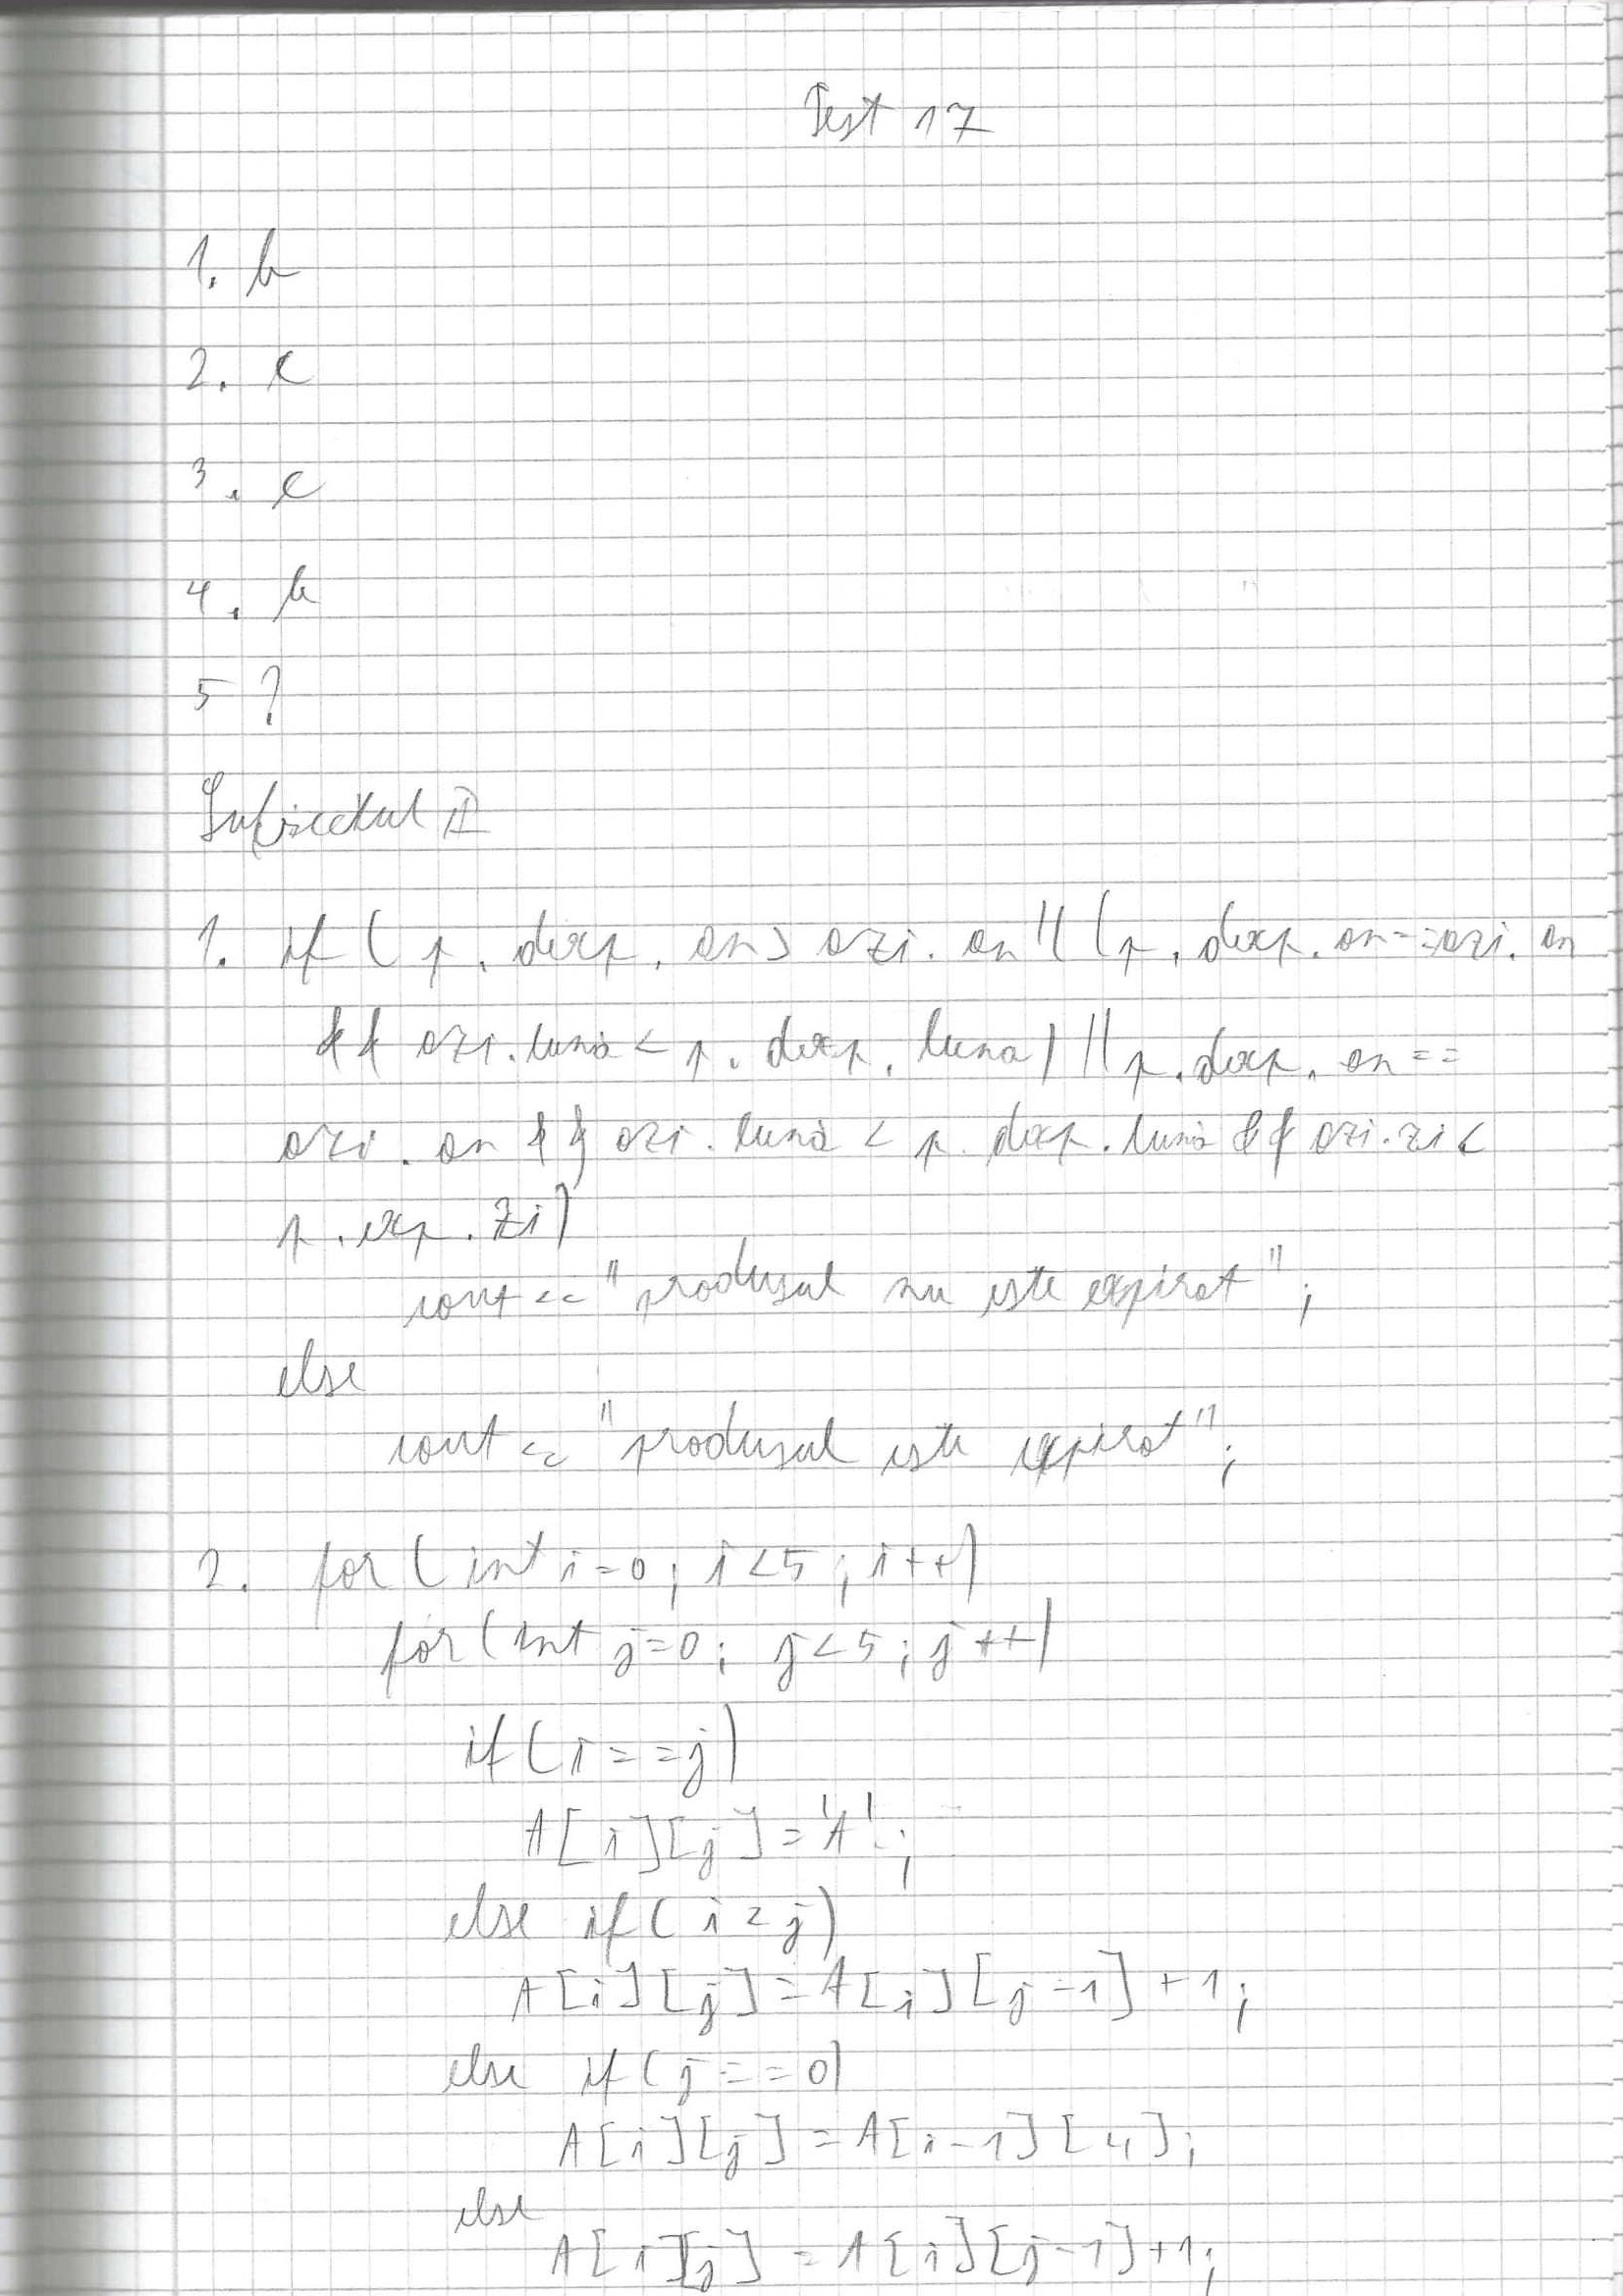 Test 17
1. b
2. c
3. c
4. b
5 ?
Subiectul II
1. if ( p. dexp. an > azi. an || (p. dexp. an == azi. an
&& azi. luna < p. dexp. luna) || p. dexp. an ==
azi. an && azi. luna < p. dexp. luna && azi. zi <
p. exp. zi)
cout << "produsul nu este expirat";
else
cout << "produsul este expirat";
2. for ( int i=0; i<5; i++)
for (int j=0; j<5; j++)
if (i==j)
A[i][j]='A';
else if (i<j)
A[i][j]=A[i][j-1]+1;
else if (j==0)
A[i][j]=A[i-1][4];
else
A[i][j]=A[i][j-1]+1;